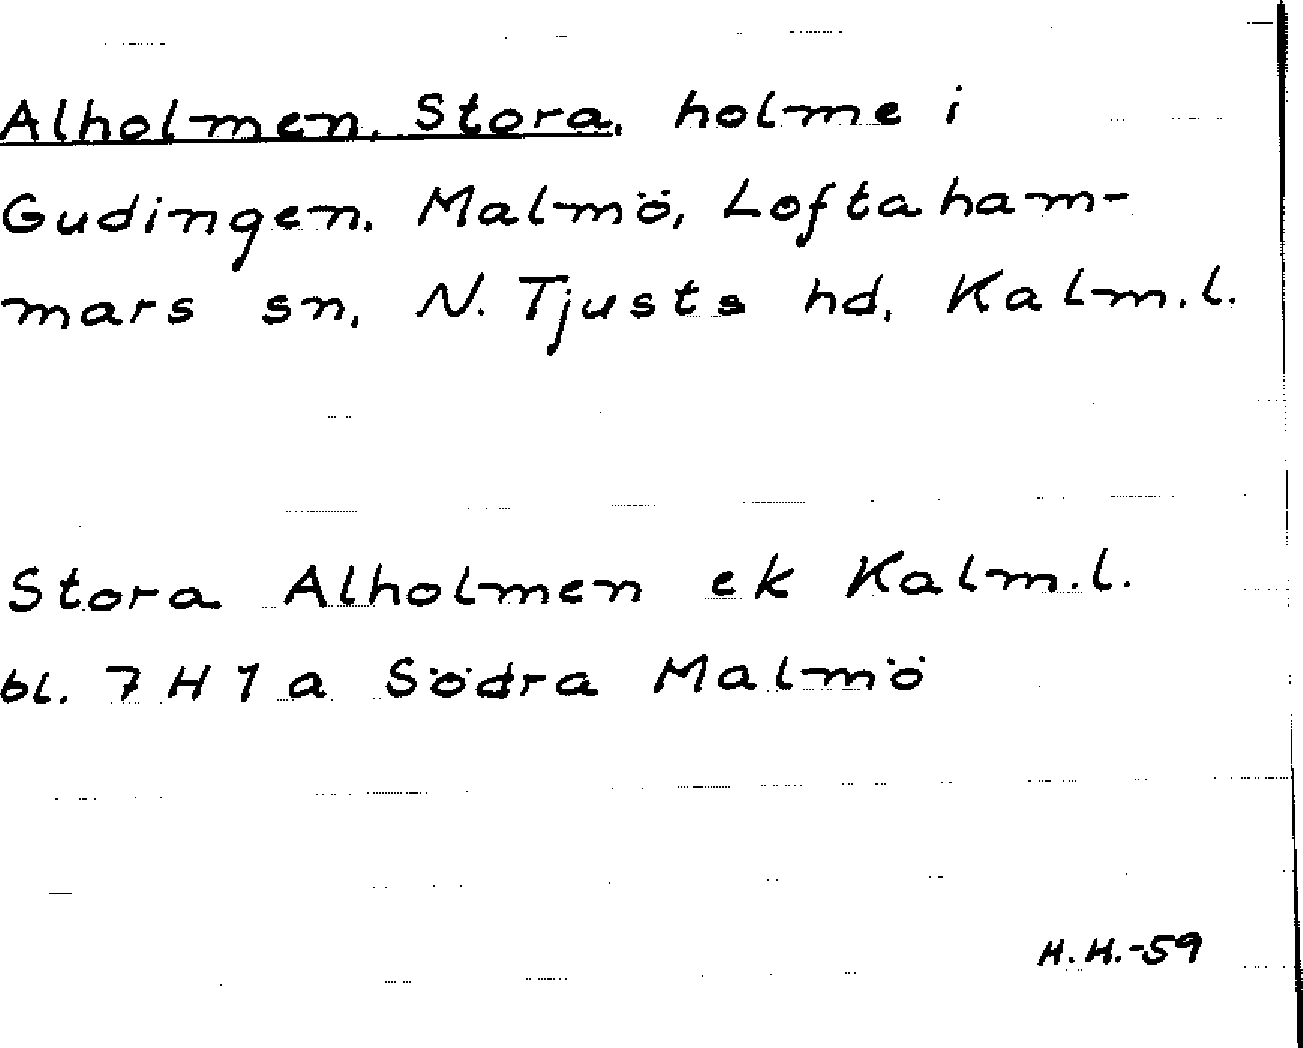 Alholmen, Stora, holme i
Gudingen, Malmö, Loftaham-
mars sn, N. Tjusts hd, Kalm.l.
Stora Alholmen ek Kalm.l.
bl. 7 H 1 a Södra Malmö
H.H.-59